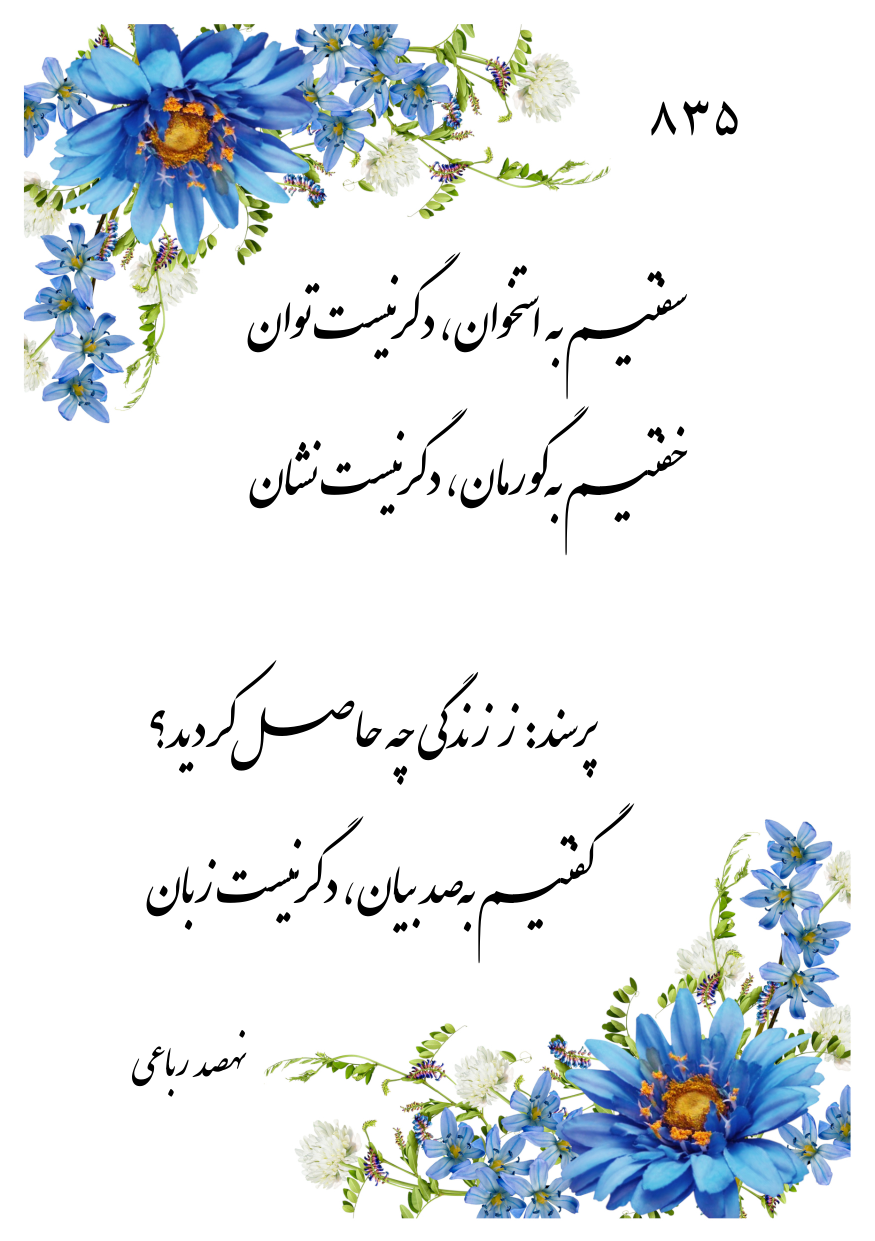 ۸۳۵
سفتیم به استخوان، دگر نیست توان
خفتیم به گورمان، دگر نیست نشان
پرسند: ز زندگی چه حاصل کردید؟
گفتیم به صد بیان، دگر نیست زبان
نهصد رباعی